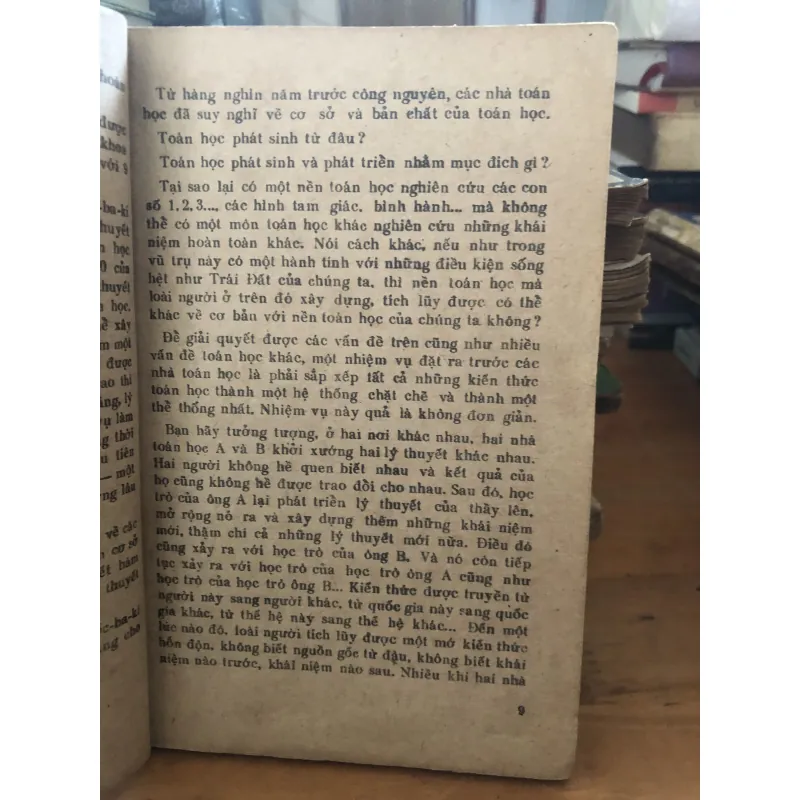 hoàn
được
khoa
với 9
-ba-ki
huyết
học
0 của
thuyết
học.
ề xây
m một
được
ao thi
ng, lý
vụ làm
g thời
u tiên
— một
ng lâu
về các
n cơ sở
ết hàm
thuyết
c-ba-ki
ng cho
Từ hàng nghìn năm trước công nguyên, các nhà toán
học đã suy nghĩ về cơ sở và bản chất của toán học.
Toán học phát sinh từ đâu?
Toán học phát sinh và phát triển nhằm mục đích gì?
Tại sao lại có một nền toán học nghiên cứu các con
số 1, 2, 3..., các hình tam giác, bình hành... mà không
thể có một môn toán học khác nghiên cứu những khái
niệm hoàn toàn khác. Nói cách khác, nếu như trong
vũ trụ này có một hành tinh với những điều kiện sống
hệt như Trái Đất của chúng ta, thì nền toán học mà
loài người ở trên đó xây dựng, tích lũy được có thể
khác về cơ bản với nền toán học của chúng ta không?
Để giải quyết được các vấn đề trên cũng như nhiều
vấn đề toán học khác, một nhiệm vụ đặt ra trước các
nhà toán học là phải sắp xếp tất cả những kiến thức
toán học thành một hệ thống chặt chẽ và thành một
thể thống nhất. Nhiệm vụ này quả là không đơn giản.
Bạn hãy tưởng tượng, ở hai nơi khác nhau, hai nhà
toán học A và B khởi xướng hai lý thuyết khác nhau.
Hai người không hề quen biết nhau và kết quả của
họ cũng không hề được trao đổi cho nhau. Sau đó, học
trò của ông A lại phát triển lý thuyết của thầy lên,
mở rộng nó ra và xây dựng thêm những khái niệm
mới, thậm chí cả những lý thuyết mới nữa. Điều đó
cũng xảy ra với học trò của ông B. Và nó còn tiếp
tục xảy ra với học trò của học trò ông A cũng như
học trò của học trò ông B... Kiến thức được truyền từ
người này sang người khác, từ quốc gia này sang quốc
gia khác, từ thế hệ này sang thế hệ khác... Đến một
lúc nào đó, loài người tích lũy được một mớ kiến thức
hỗn độn, không biết nguồn gốc từ đâu, không biết khái
niệm nào trước, khái niệm nào sau. Nhiều khi hai nhà
9